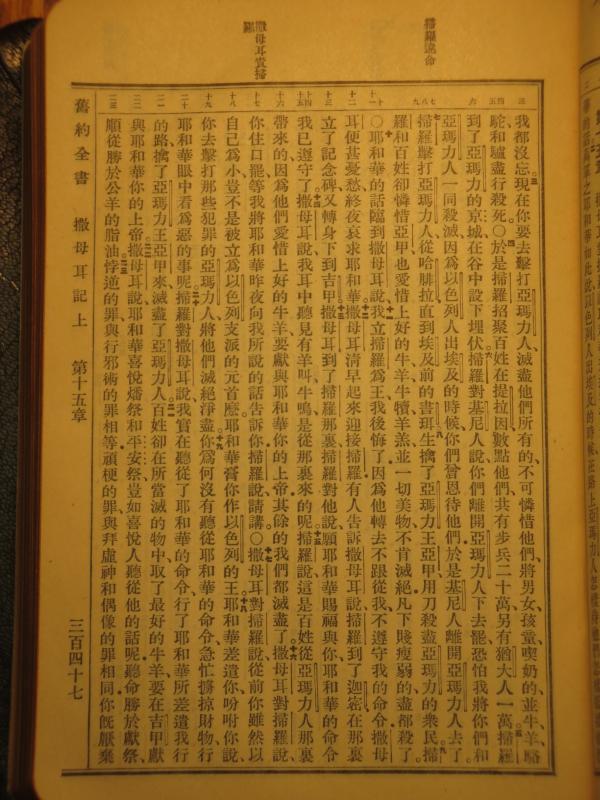 掃羅違命
撒母耳責掃羅
三
四
五
六
七
八
九
十
十一
十二
十三
十四
十五
十六
十七
十八
十九
二十
二一
二二
二三
我都沒忘現在你要去擊打亞瑪力人、滅盡他們所有的、不可憐惜他們、將男女、孩童喫奶的、並牛、羊、駱
駝和驢盡行殺死。○於是掃羅招聚百姓、在提拉因數點他們、共有步兵二十萬、另有猶大人一萬。掃羅
到了亞瑪力的京城、在谷中設下埋伏。掃羅對基尼人說、你們離開亞瑪力人下去罷、恐怕我將你們和
亞瑪力人一同殺滅、因爲以色列人出埃及的時候、你們曾恩待他們、於是基尼人離開亞瑪力人去了。
掃羅擊打亞瑪力人、從哈腓拉直到埃及前的書珥、生擒了亞瑪力王亞甲、用刀殺盡亞瑪力的衆民。掃
羅和百姓卻憐惜亞甲、也愛惜上好的牛、羊、牛犢、羊羔、並一切美物、不肯滅絕、凡下賤瘦弱的、盡都殺了。
○耶和華的話臨到撒母耳說、我立掃羅爲王、我後悔了、因爲他轉去不跟從我、不遵守我的命令。撒母
耳便甚憂愁、終夜哀求耶和華。撒母耳清早起來、迎接掃羅、有人告訴撒母耳說、掃羅到了迦密、在那裏
立了記念碑、又轉身下到吉甲。撒母耳到了掃羅那裏、掃羅對他說、願耶和華賜福與你、耶和華的命令
我已遵守了。撒母耳說、我耳中聽見有羊叫、牛鳴、是從那裏來的呢。掃羅說、這是百姓從亞瑪力人那裏
帶來的、因爲他們愛惜上好的牛羊、要獻與耶和華你的上帝、其餘的我們都滅盡了。撒母耳對掃羅說、
你住口罷、等我將耶和華昨夜向我所說的話告訴你、掃羅說、請講。○撒母耳對掃羅說、從前你雖然以
自己爲小、豈不是被立爲以色列支派的元首麼、耶和華膏你作以色列的王。耶和華差遣你、吩咐你說、
你去擊打那些犯罪的亞瑪力人、將他們滅絕淨盡。你爲何沒有聽從耶和華的命令、急忙擄掠財物、行
耶和華眼中看爲惡的事呢。掃羅對撒母耳說、我實在聽從了耶和華的命令、行了耶和華所差遣我行
的路、擒了亞瑪力王亞甲來、滅盡了亞瑪力人。百姓卻在所當滅的物中、取了最好的牛羊、要在吉甲獻
與耶和華你的上帝。撒母耳說、耶和華喜悅燔祭和平安祭、豈如喜悅人聽從他的話呢、聽命勝於獻祭、
順從勝於公羊的脂油。悖逆的罪與行邪術的罪相等、頑梗的罪與拜虛神和偶像的罪相同、你既厭棄
舊約全書　撒母耳記上　第十五章　三百四十七